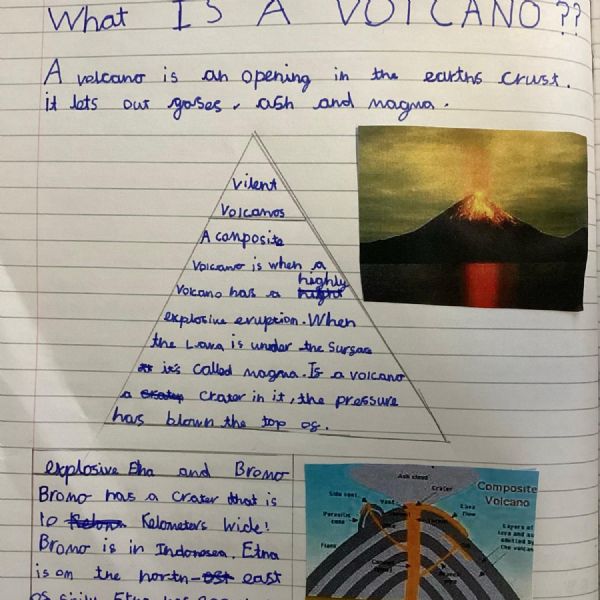 What IS A VOLCANO??
A volcano is an opening in the earths crust.
it lets out gases, ash and magma.
Vilent
Volcanos
A composite
Volcano is when a
highly
Volcano has a
explosive eruption. When
the Lava is under the Sursace
it's called magma. Is a volcano
a crater in it, the pressure
has blown the top os.
explosive Etna and Bromo
Bromo has a crater that is
10 Kelometers wide!
Bromo is in Indonosea. Etna
is on the north-east
Ash cloud
Crater
Composite
Volcano
Side vent
Vent
Lava
flow
Parasitic
cone
Layers of
Flank
emitted by
the volcano